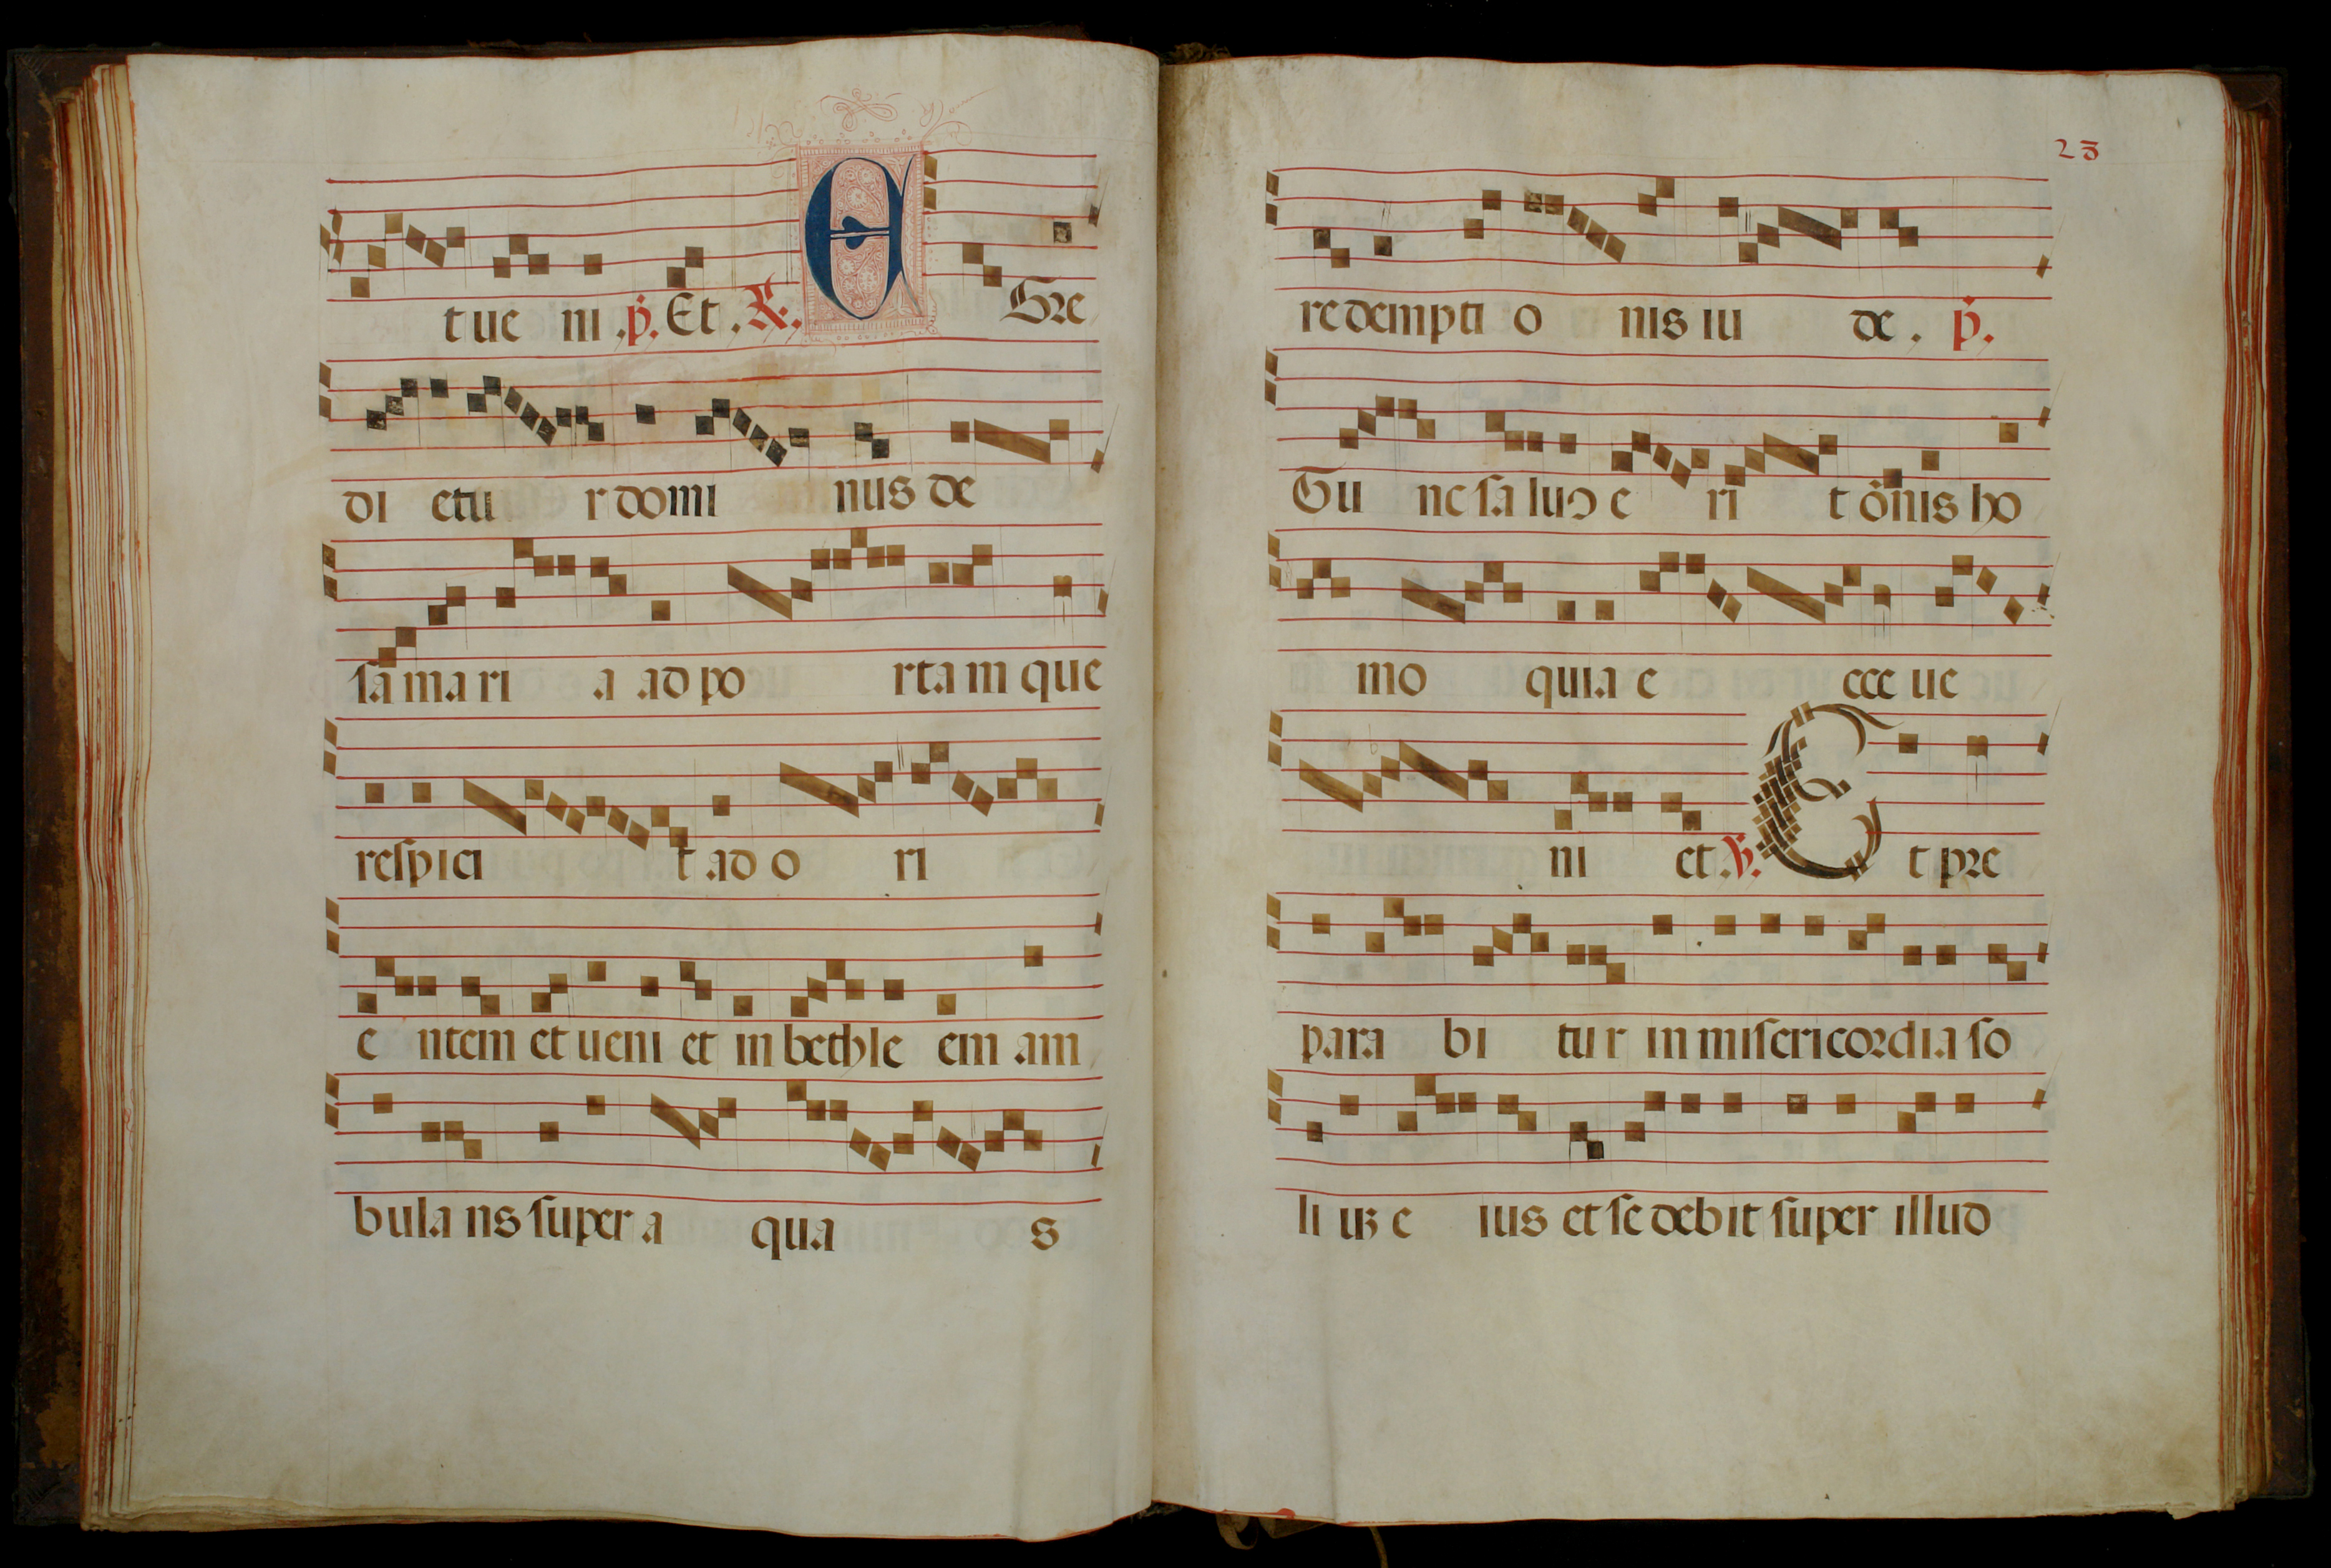 tue ni .p̄. Et . ℟. EGre
di etu r domi nus de
ſa ma ri a ad po rta m que
reſpici t ad o ri
e ntem et ueni et in bethle em am
bula ns ſuper a qua s
23
redempti o nis iu de . p̄.
Tu nc ſa luꝰ e ri t o᷈nis ho
mo quia e cce ue
ni et .℣. Et pre
para bi tu r in miſericordia ſo
li uꝫ e ius et ſe debit ſuper illud